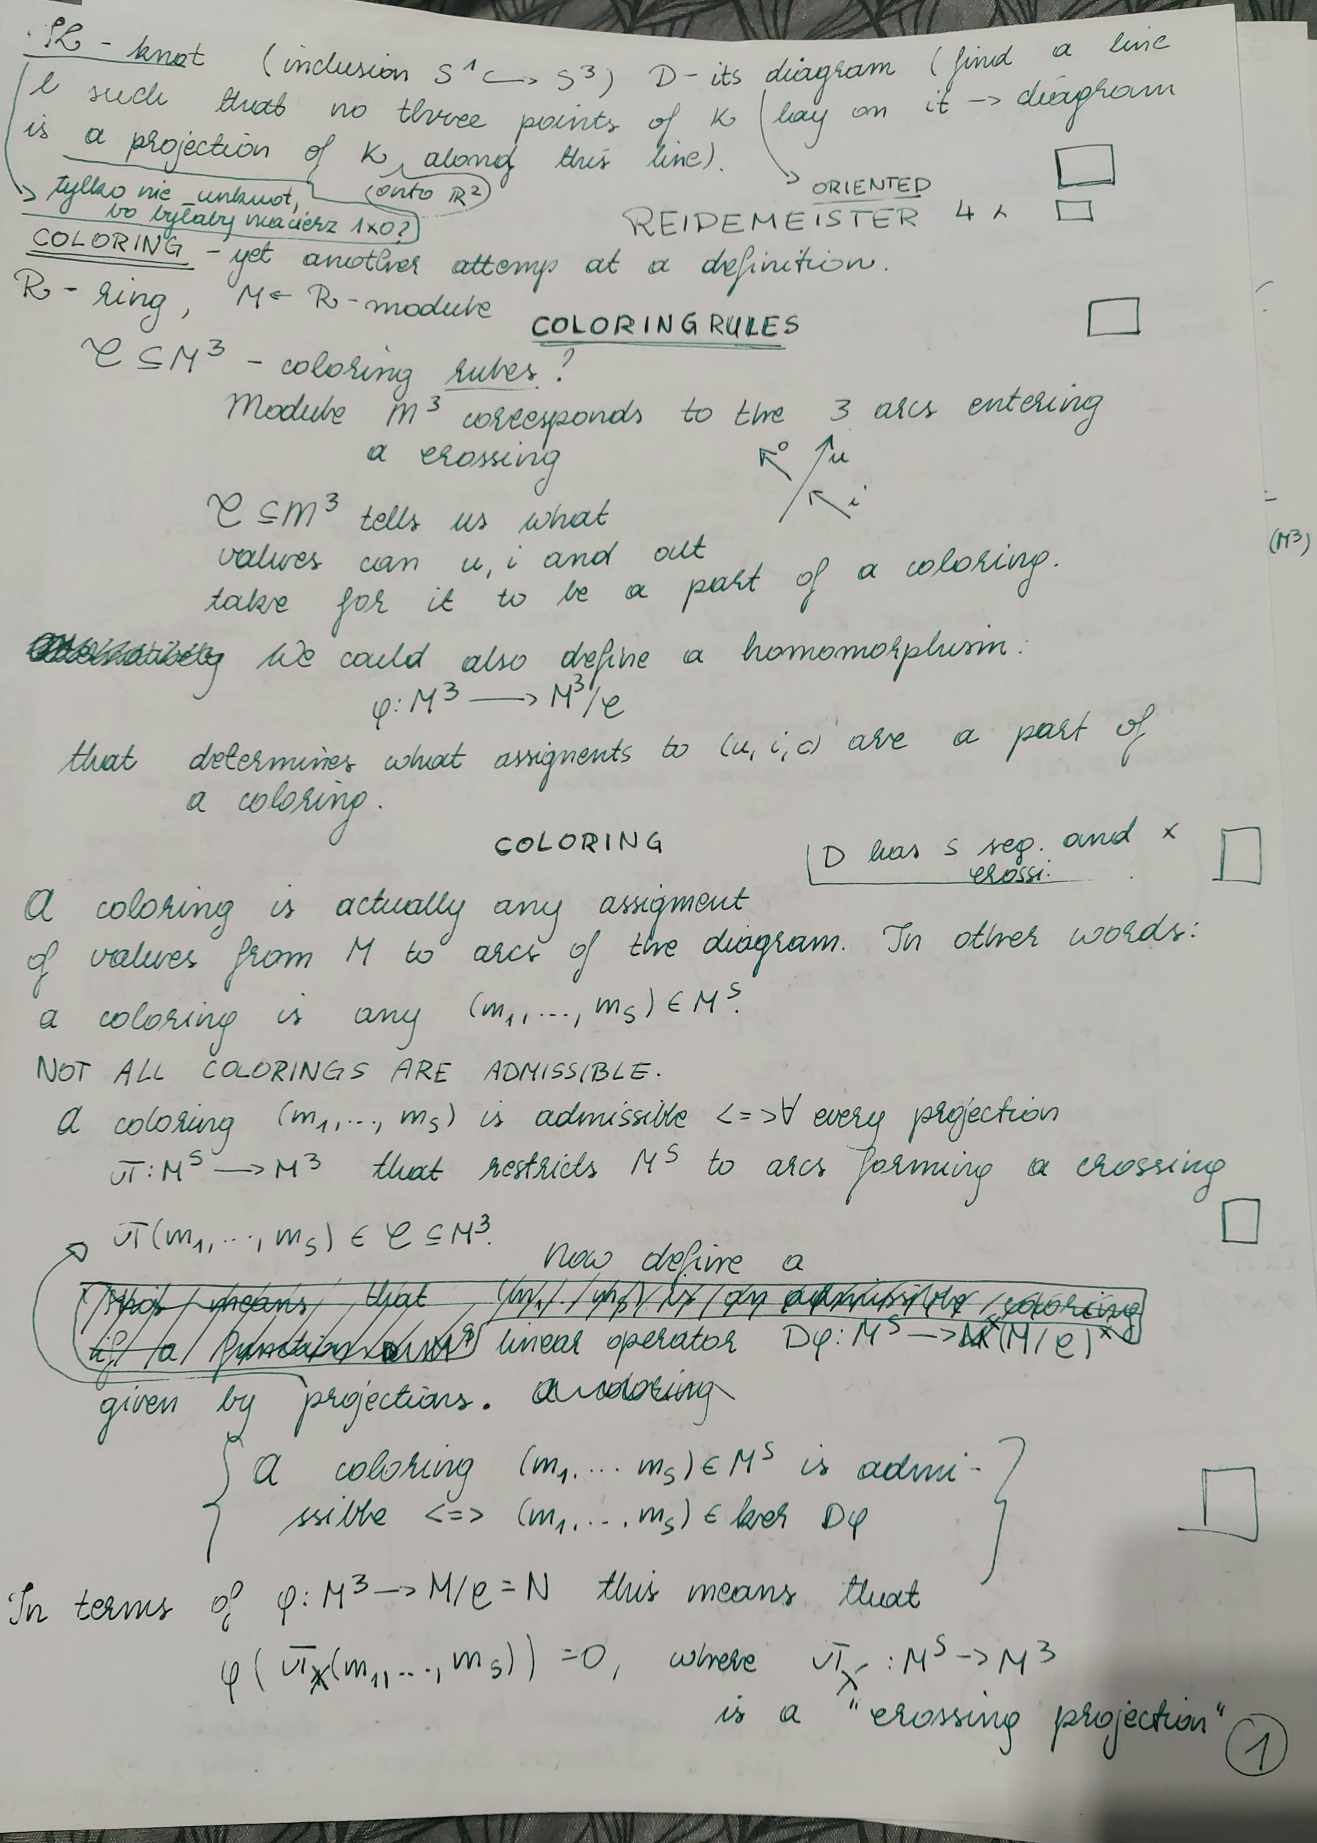 PL - knot (inclusion S¹ ↪ S³) D - its diagram (find a line
l such that no three points of K lay on it → diagram
is a projection of K along this line).
(onto ℝ²)
→ tylko nie unknot,
bo byłaby macierz 1x0?
ORIENTED
REIDEMEISTER 4 x
COLORING - yet another attemp at a definition.
R - ring, M ← R - module
COLORING RULES
C ⊆ M³ - coloring rules?
Module M³ corresponds to the 3 arcs entering
a crossing
o u i
C ⊆ M³ tells us what
values can u, i and out
take for it to be a part of a coloring.
(M³)
We could also define a homomorphism:
φ: M³ → M³/C
that determines what assigments to (u, i, o) are a part of
a coloring.
COLORING
D has s seg. and x
crossi.
A coloring is actually any assigment
of values from M to arcs of the diagram. In other words:
a coloring is any (m₁, ..., mₛ) ∈ Mˢ.
NOT ALL COLORINGS ARE ADMISSIBLE.
A coloring (m₁, ..., mₛ) is admissible <=> ∀ every projection
π: Mˢ → M³ that restricts Mˢ to arcs forming a crossing
π(m₁, ..., mₛ) ∈ C ⊆ M³.
Now define a
linear operator Dφ: Mˢ → (M/C)ˣ
given by projections. a coloring
A coloring (m₁, ... mₛ) ∈ Mˢ is admi-
ssible <=> (m₁, ..., mₛ) ∈ ker Dφ
In terms of φ: M³ → M/C = N this means that
φ(πₓ(m₁, ..., mₛ)) = 0, where πₓ: Mˢ → M³
is a "crossing projection"
1